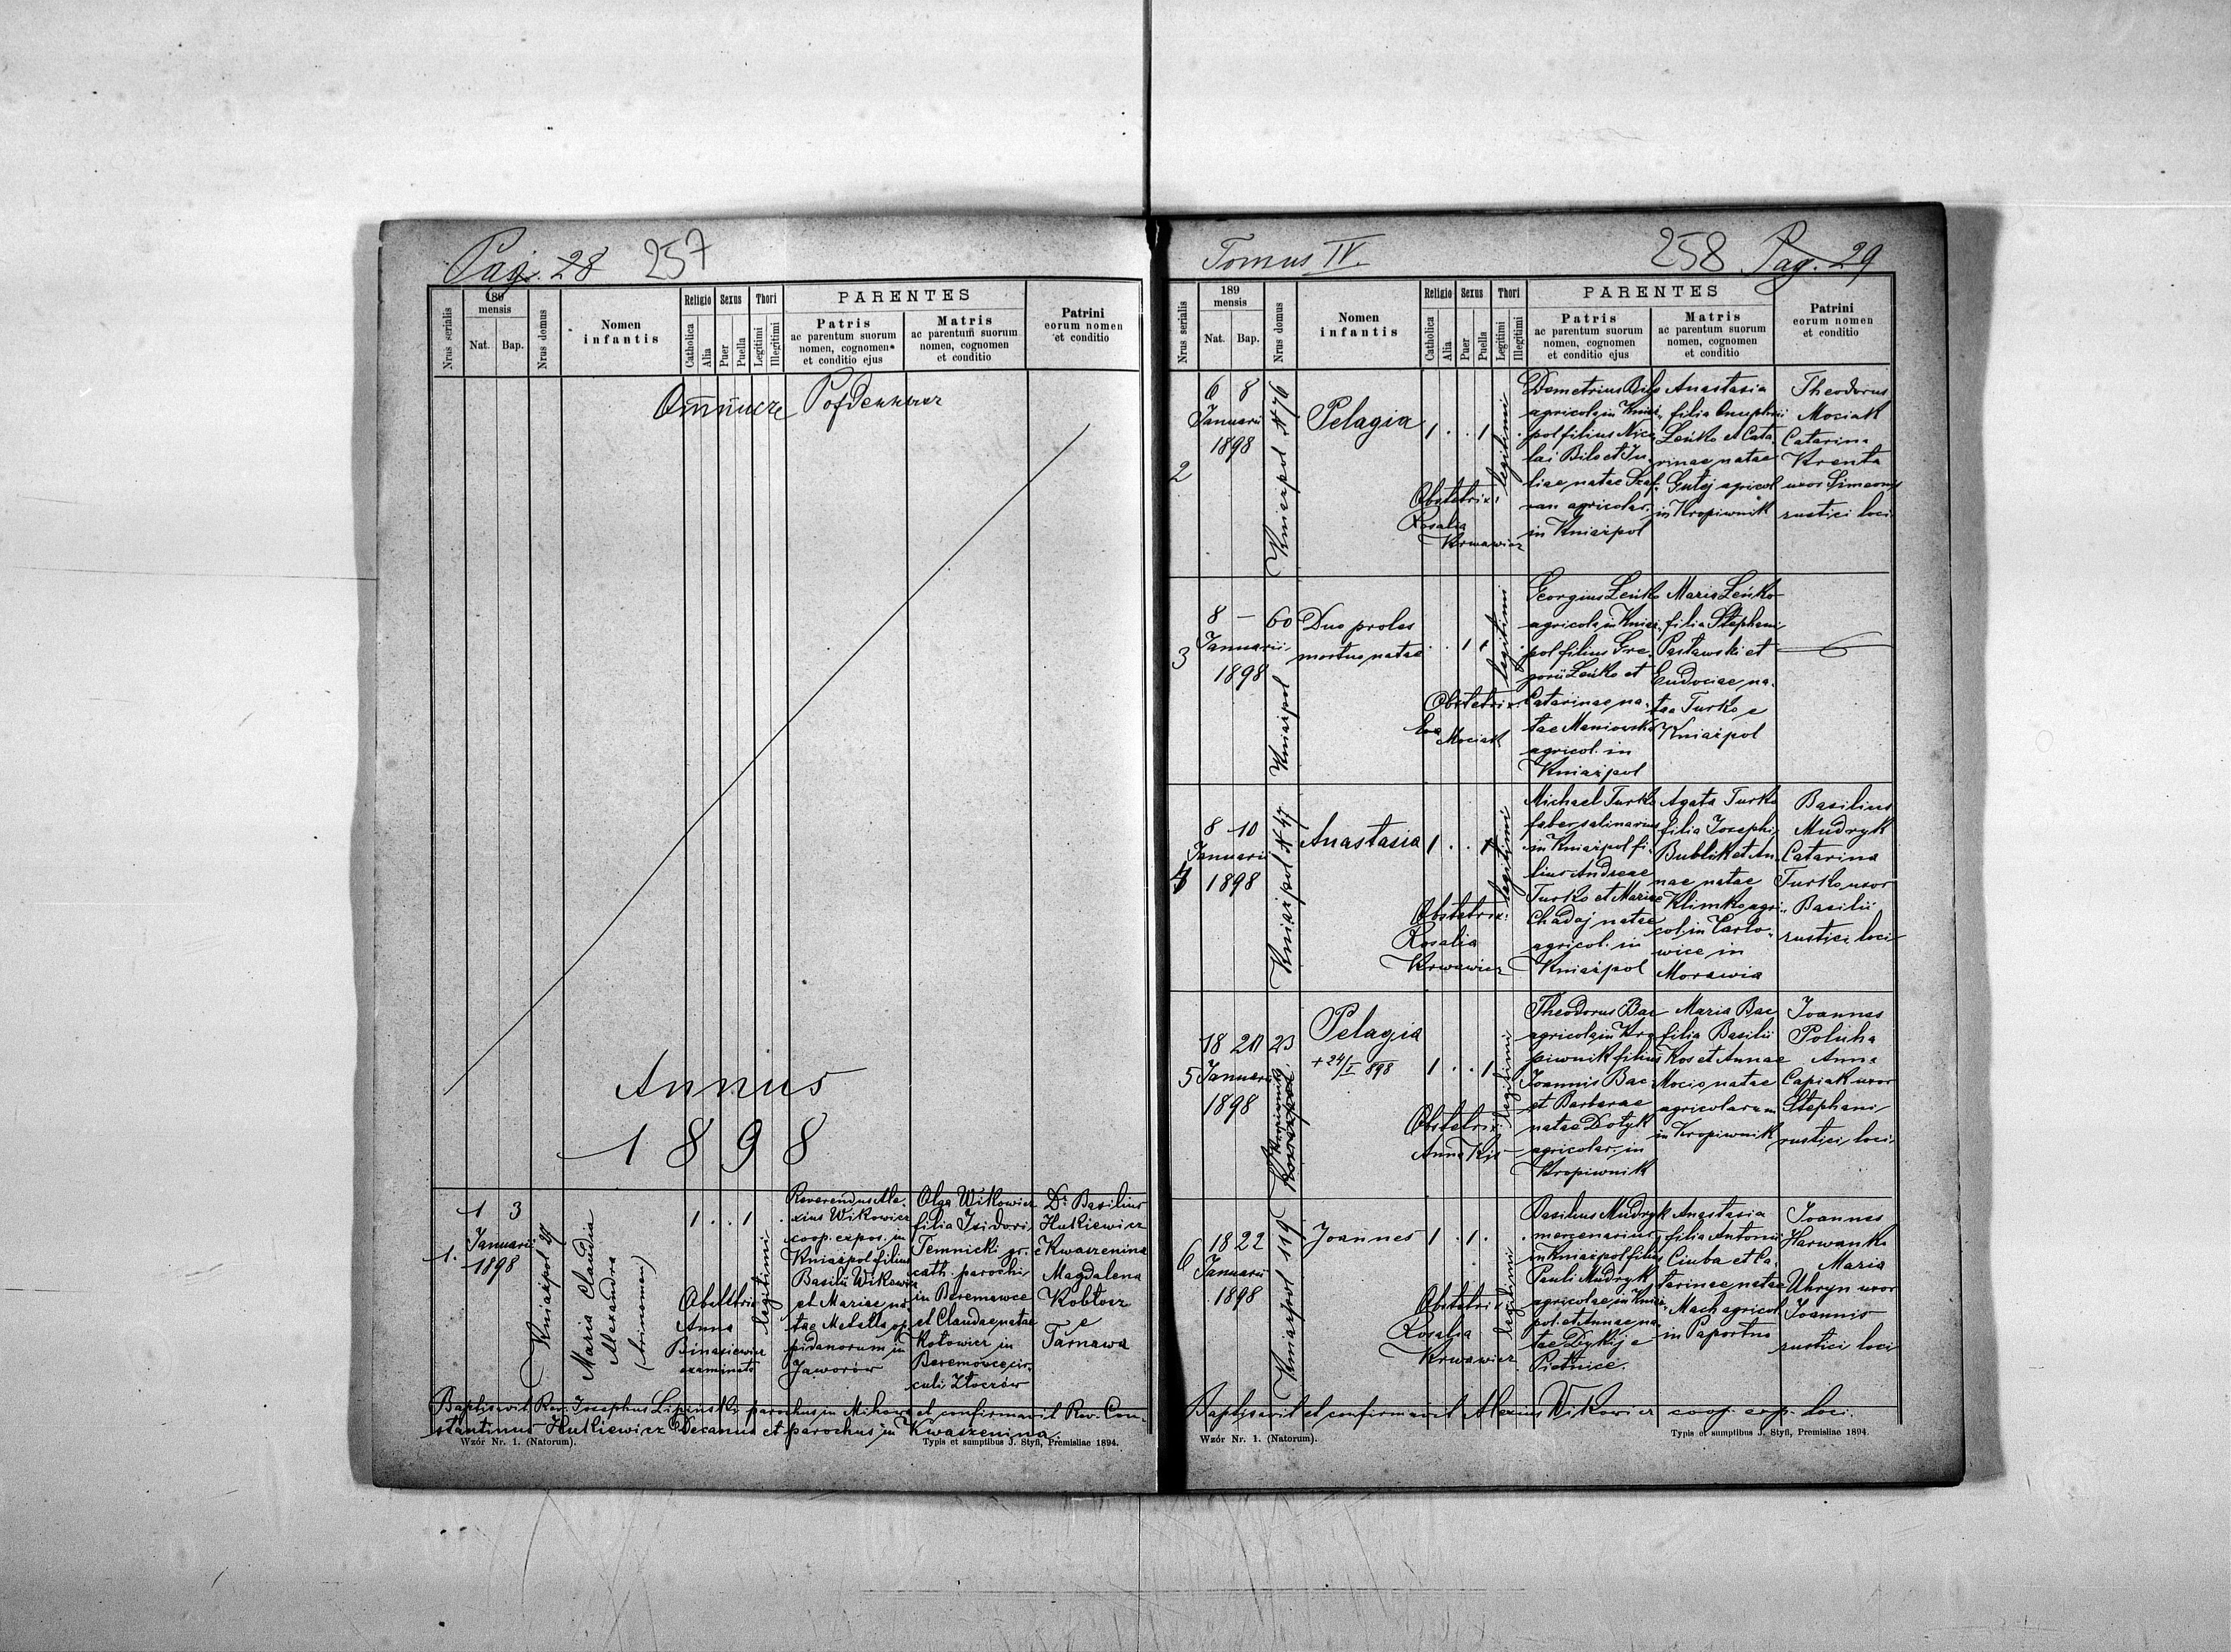 Pag. 28 257
Nrus serialis
189
mensis
Nat. Bap.
Nrus domus
Nomen
infantis
Religio Sexus Thori
Catholica Alia Puer Puella Legitimi Illegitimi
PARENTES
Patris
ac parentum suorum
nomen, cognomen
et conditio ejus
Matris
ac parentum suorum
nomen, cognomen
et conditio
Patrini
eorum nomen
et conditio
Annus
1898
1.
1 3
Januarii
1898
Kniażpol 27
Maria Claudia
Alexandra
(trinomen)
1 . . 1 .
legitimi
Obstetrix
Anna
Binasiewicz
examinata
Reverendus Ale-
xius Wikowicz
coop. expos. in
Kniażpol filius
Basilii Wikowicz
et Mariae na-
tae Metella op-
pidanorum in
Jaworów
Olga Wikowicz
filia Isidori
Temnicki gr.
cath. parochi
in Beremowce
et Claudae natae
Kotowicz in
Beremowce cir-
culi Złoczów
Dr Basilius
Hutkiewicz
e Kwaszenina
Magdalena
Kobłosz
e
Tarnawa
Baptisavit Rev. Josephus Lipinski parochus in Mikowa et confirmavit Rev. Con-
stantinus Hutkiewicz Decanus et parochus in Kwaszenina.
Wzór Nr. 1. (Natorum).
Typis et sumptibus J. Styfi, Premisliae 1894.
Tomus IV. 258 Pag. 29
Nrus serialis
189
mensis
Nat. Bap.
Nrus domus
Nomen
infantis
Religio Sexus Thori
Catholica Alia Puer Puella Legitimi Illegitimi
PARENTES
Patris
ac parentum suorum
nomen, cognomen
et conditio ejus
Matris
ac parentum suorum
nomen, cognomen
et conditio
Patrini
eorum nomen
et conditio
2
6 8
Januarii
1898
Kniażpol N 76
Pelagia
1 . . 1 .
legitimi
Obstetrix:
Rosalia
Krwawicz
Demetrius Bilo
agricola in Kniaż-
pol filius Nico-
lai Bilo et Ju-
liae natae Szaf-
ran agricolar.
in Kniażpol
Anastasia
filia Onuphrii
Leńko et Cata-
rinae natae
Gulej agricol
in Kropiwnik
Theodorus
Mociak
Catarina
Krenta
uxor Simeonis
rustici loci
3
8 — 60
Januarii
1898
Kniażpol
Duo proles
mortuo natae
. . 1 1 .
legitimi
Obstetrix
Eva
Mociak
Georgius Leńko
agricola in Kniaż-
pol filius Gre-
gorii Leńko et
Catarinae na-
tae Maniowska
agricol. in
Kniażpol
Maria Leńko
filia Stephani
Pasławski et
Eudociae na-
tae Turko e
Kniażpol
4
8 10
Januarii
1898
Kniażpol N 47
Anastasia
1 . . 1
legitimi
Obstetrix:
Rosalia
Krwawicz
Michael Turko
faber salinarius
in Kniażpol fi-
lius Andreae
Turko et Mariae
Chadaj natae
agricol. in
Kniażpol
Agata Turko
filia Josephi
Bublik et An-
nae natae
Klimko agri-
col. in Carlo-
wice in
Morawia
Basilius
Mudryk
Catarina
Turko uxor
Basilii
rustici loci
5
18 20 23
Januarii
1898
Kropiwnik
Pelagia
+ 24/I 898
1 . . 1
legitimi
Obstetrix
Anna Kis
Theodorus Bac
agricola in Kro-
piwnik filius
Joannis Bac
et Barbarae
natae Dotyk
agricolar. in
Kropiwnik
Maria Bac
filia Basilii
Kos et Annae
Mocio natae
agricolarum
in Kropiwnik
Joannes
Poluha
Anna
Capiak uxor
Stephani
rustici loci.
6
18 22
Januarii
1898
Kniażpol 119
Joannes
1 . 1 .
legitimi
Obstetrix
Rosalia
Krwawicz
Basilius Mudryk
mercenarius
in Kniażpol filius
Pauli Mudryk
agricolae in Kniaż-
pol et Annae na-
tae Dykij e
Piatnice.
Anastasia
filia Antonii
Ciuba et Ca-
tarinae natae
Mach agricol
in Paportno
Joannes
Harwanko
Maria
Uhryn uxor
Joannis
rustici loci
Baptisavit et confirmavit Alexius Wikowicz coop. exp. loci.
Wzór Nr. 1. (Natorum).
Typis et sumptibus J. Styfi, Premisliae 1894.